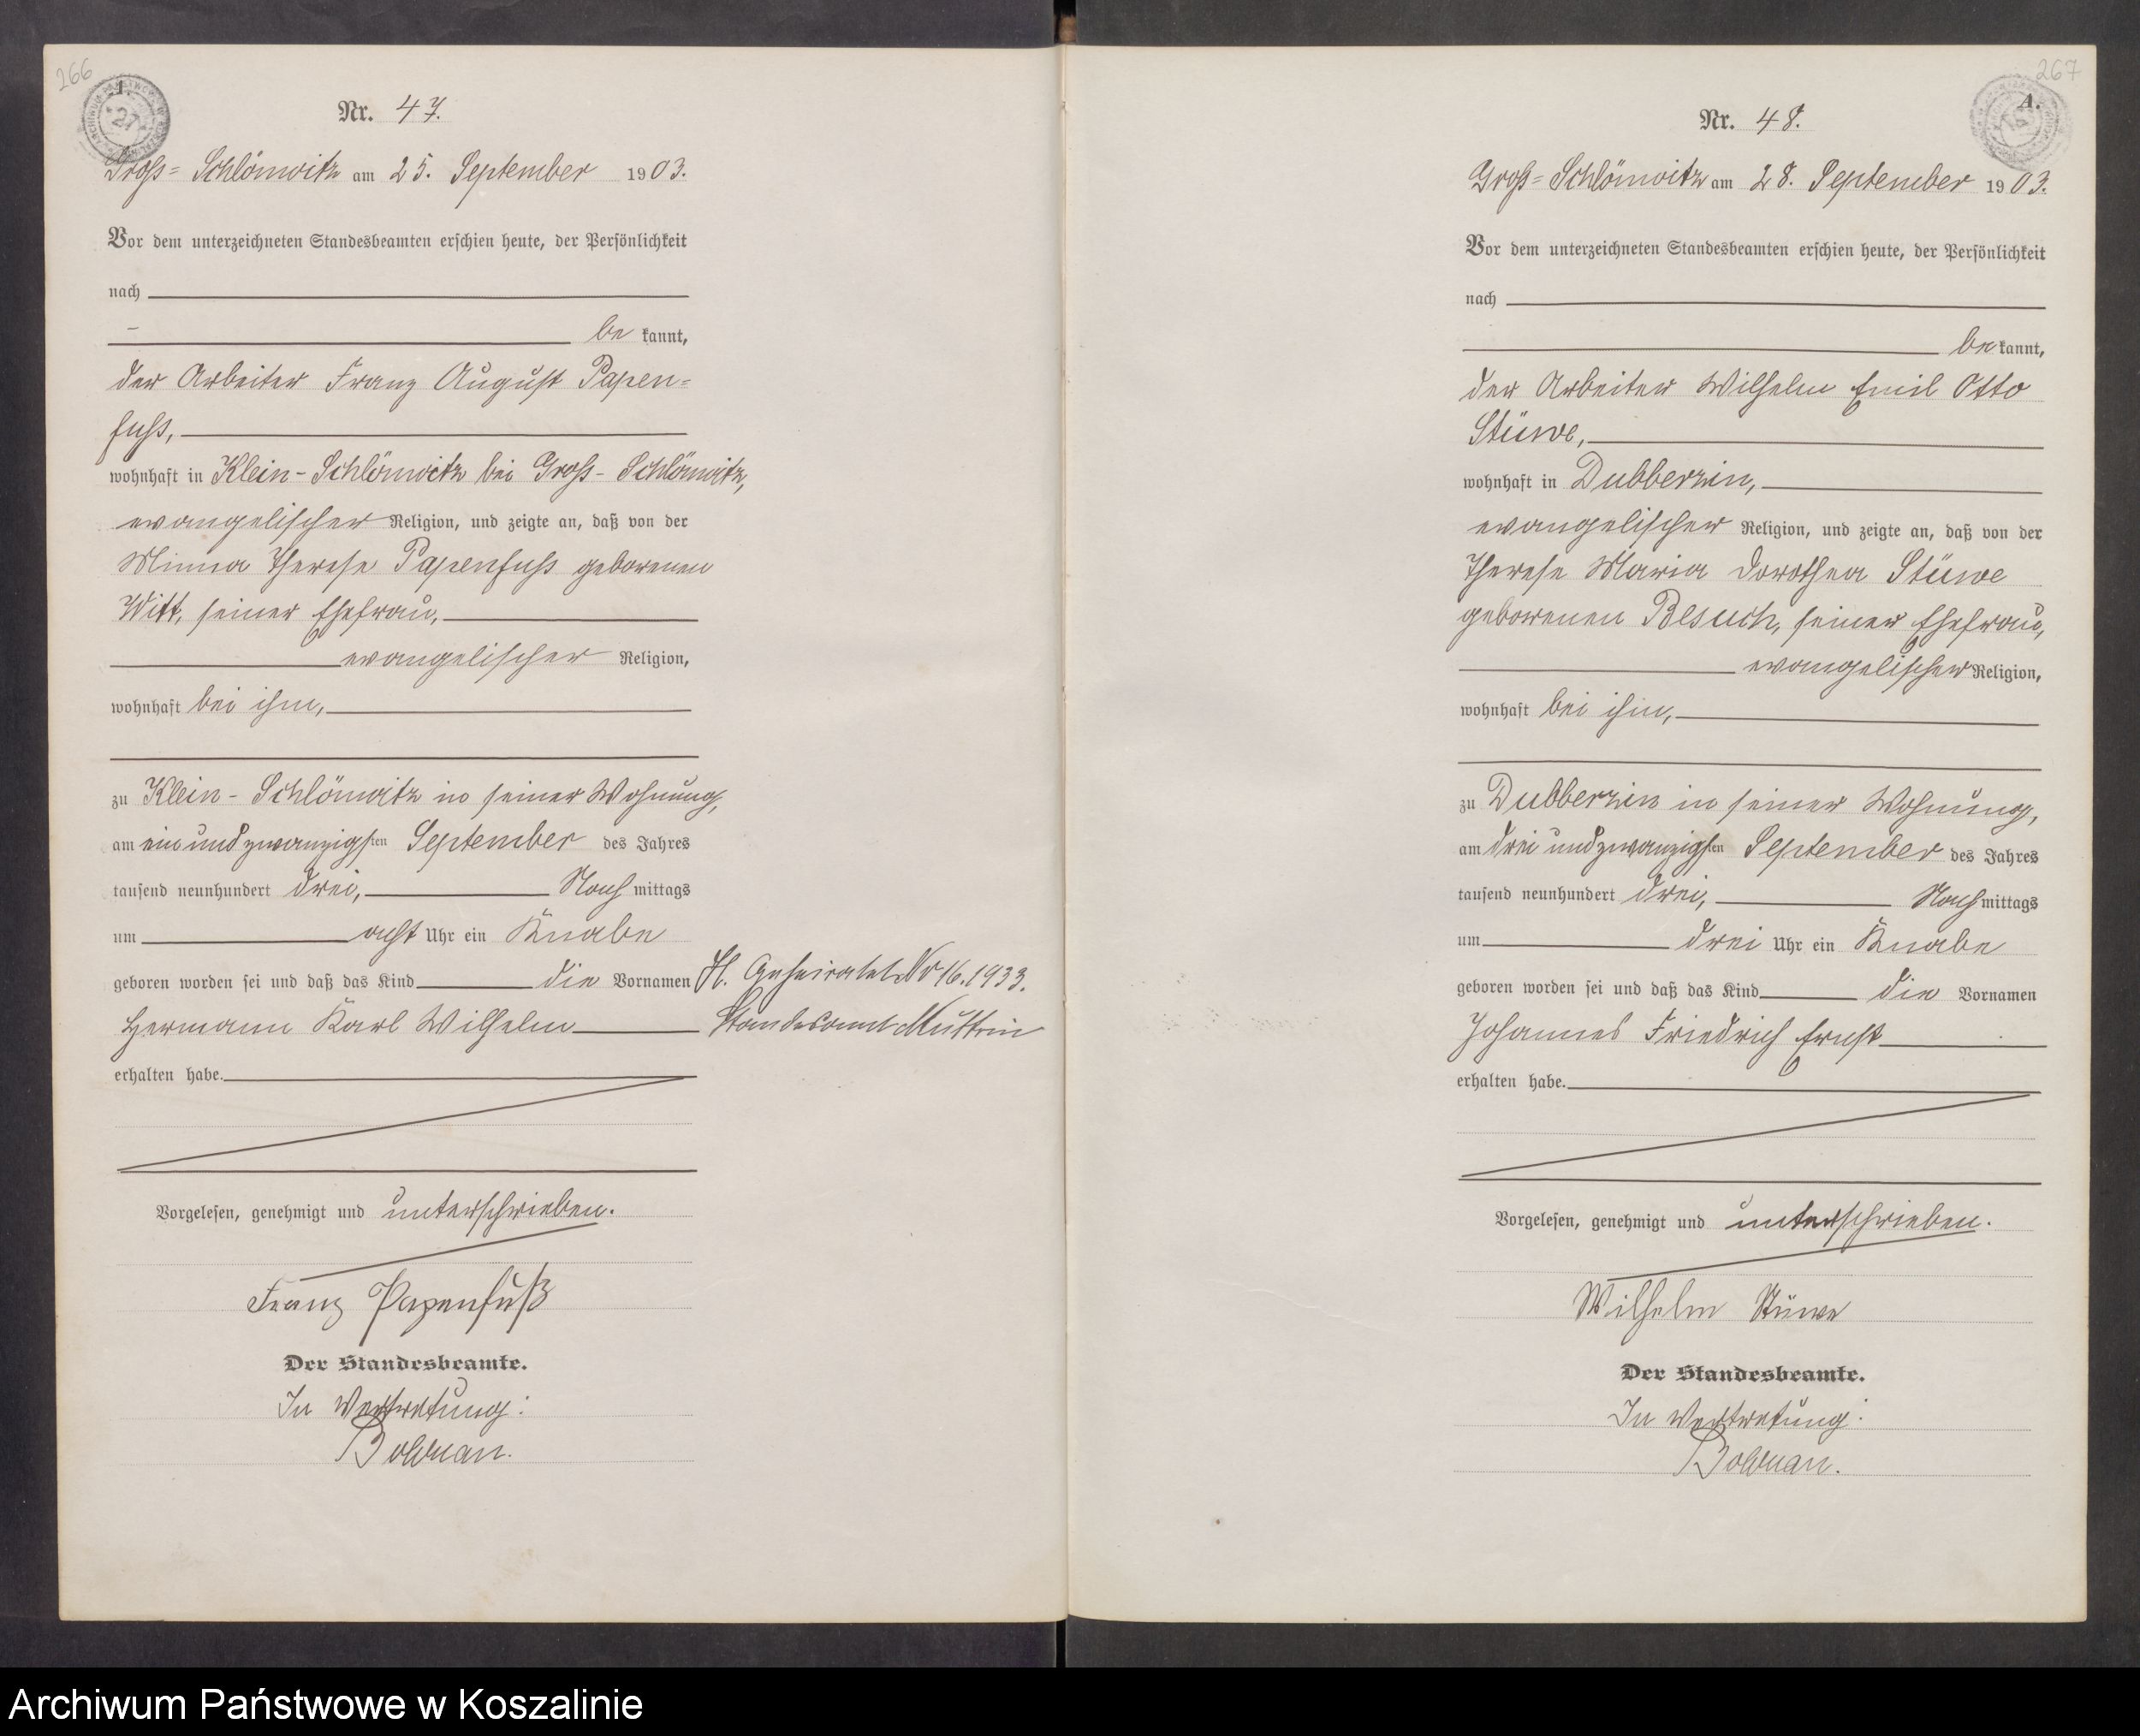 266
A.
27
Nr. 47.
Gross= Schlönwitz am 25. September 1903.
Vor dem unterzeichneten Standesbeamten erschien heute, der Persönlichkeit
nach
be kannt,
der Arbeiter Franz August Papen=
fuss,
wohnhaft in Klein-Schlönwitz bei Gross-Schlönwitz,
evangelischer Religion, und zeigte an, daß von der
Minna Therese Papenfuss geborenen
Witt, seiner Ehefrau,
evangelischer Religion,
wohnhaft bei ihm,
zu Klein-Schlönwitz in seiner Wohnung,
am ein und zwanzigsten September des Jahres
tausend neunhundert drei, Nach mittags
um acht Uhr ein Knabe
geboren worden sei und daß das Kind die Vornamen
Hermann Karl Wilhelm
erhalten habe.
H. Geheiratet Nr 16.1933.
Standesamt Muttrin
Vorgelesen, genehmigt und unterschrieben.
Franz Papenfuß
Der Standesbeamte.
In Vertretung:
267
A.
Nr. 48.
Gross= Schlönwitz am 28. September 1903.
Vor dem unterzeichneten Standesbeamten erschien heute, der Persönlichkeit
nach
be kannt,
der Arbeiter Wilhelm Emil Otto
Stüwe,
wohnhaft in Dubberzin,
evangelischer Religion, und zeigte an, daß von der
Therese Maria Dorothea Stüwe
geborenen Besuch, seiner Ehefrau,
evangelischer Religion,
wohnhaft bei ihm,
zu Dubberzin in seiner Wohnung,
am drei und zwanzigsten September des Jahres
tausend neunhundert drei, Nach mittags
um drei Uhr ein Knabe
geboren worden sei und daß das Kind die Vornamen
Johannes Friedrich Ernst
erhalten habe.
Vorgelesen, genehmigt und unterschrieben.
Wilhelm Stüwe
Der Standesbeamte.
In Vertretung:
Archiwum Państwowe w Koszalinie